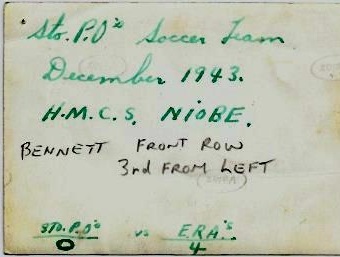 Sto. P.O's Soccer Team
December 1943.
H.M.C.S. NIOBE.
BENNETT FRONT ROW
3rd FROM LEFT
STO. P.O's vs E.R.A.'s
0 4